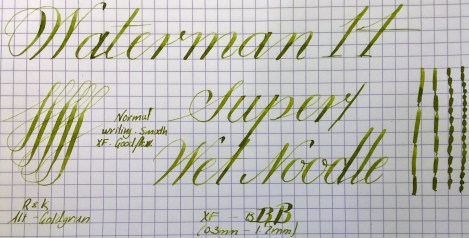 Waterman 14
Super
Wet Noodle
Normal
writing. Smooth
XF. Good
R&K
Alt-Goldgrün
XF - BBB
(0.3mm - 1.7mm)